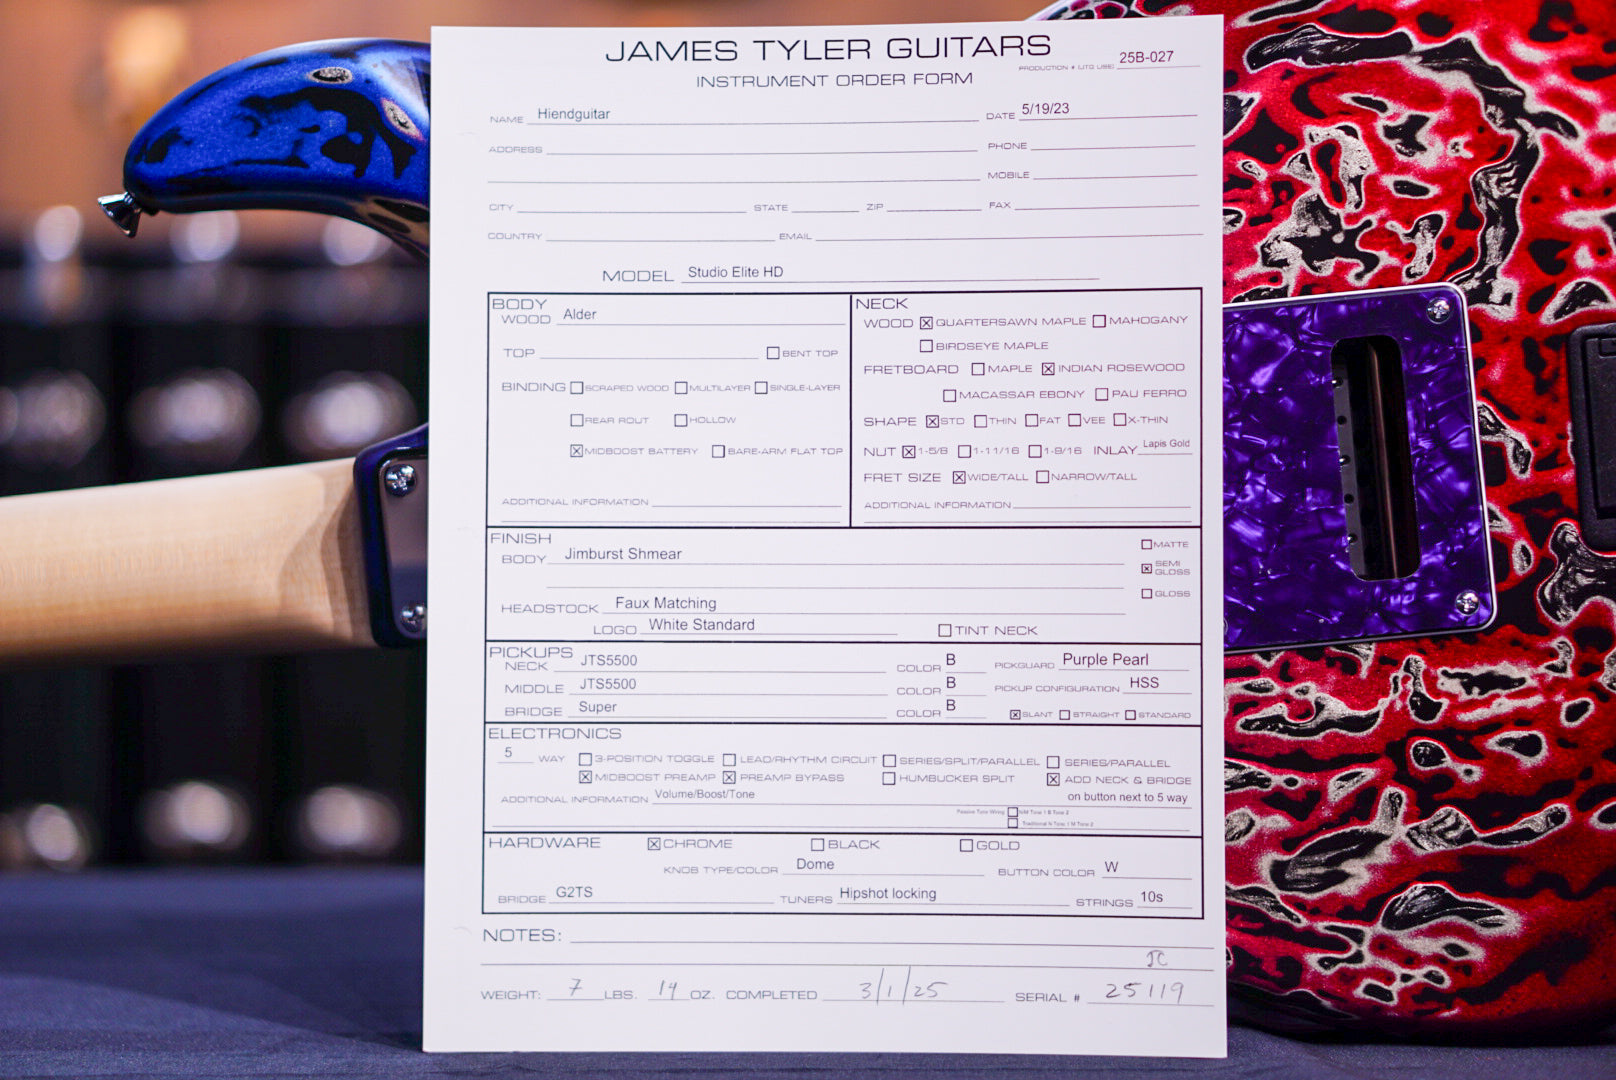 JAMES TYLER GUITARS
PRODUCTION # (JTG USE) 25B-027
INSTRUMENT ORDER FORM
NAME Hiendguitar DATE 5/19/23
ADDRESS PHONE
MOBILE
CITY STATE ZIP FAX
COUNTRY EMAIL
MODEL Studio Elite HD
BODY
WOOD Alder
TOP ☐ BENT TOP
BINDING ☐ SCRAPED WOOD ☐ MULTILAYER ☐ SINGLE-LAYER
☐ REAR ROUT ☐ HOLLOW
☒ MIDBOOST BATTERY ☐ BARE-ARM FLAT TOP
ADDITIONAL INFORMATION
NECK
WOOD ☒ QUARTERSAWN MAPLE ☐ MAHOGANY
☐ BIRDSEYE MAPLE
FRETBOARD ☐ MAPLE ☒ INDIAN ROSEWOOD
☐ MACASSAR EBONY ☐ PAU FERRO
SHAPE ☒ STD ☐ THIN ☐ FAT ☐ VEE ☐ X-THIN
NUT ☒ 1-5/8 ☐ 1-11/16 ☐ 1-9/16 INLAY Lapis Gold
FRET SIZE ☒ WIDE/TALL ☐ NARROW/TALL
ADDITIONAL INFORMATION
FINISH
BODY Jimburst Shmear
☐ MATTE
☒ SEMI GLOSS
☐ GLOSS
HEADSTOCK Faux Matching
LOGO White Standard ☐ TINT NECK
PICKUPS
NECK JTS5500 COLOR B PICKGUARD Purple Pearl
MIDDLE JTS5500 COLOR B PICKUP CONFIGURATION HSS
BRIDGE Super COLOR B ☒ SLANT ☐ STRAIGHT ☐ STANDARD
ELECTRONICS
5 WAY ☐ 3-POSITION TOGGLE ☐ LEAD/RHYTHM CIRCUIT ☐ SERIES/SPLIT/PARALLEL ☐ SERIES/PARALLEL
☒ MIDBOOST PREAMP ☒ PREAMP BYPASS ☐ HUMBUCKER SPLIT ☒ ADD NECK & BRIDGE
ADDITIONAL INFORMATION Volume/Boost/Tone on button next to 5 way
Passive Tone Wiring ☐ N/M Tone 1 B Tone 2
☐ Traditional N Tone 1 M Tone 2
HARDWARE ☒ CHROME ☐ BLACK ☐ GOLD
KNOB TYPE/COLOR Dome BUTTON COLOR W
BRIDGE G2TS TUNERS Hipshot locking STRINGS 10s
NOTES:
JC
WEIGHT: 7 LBS. 14 OZ. COMPLETED 3/1/25 SERIAL # 25119